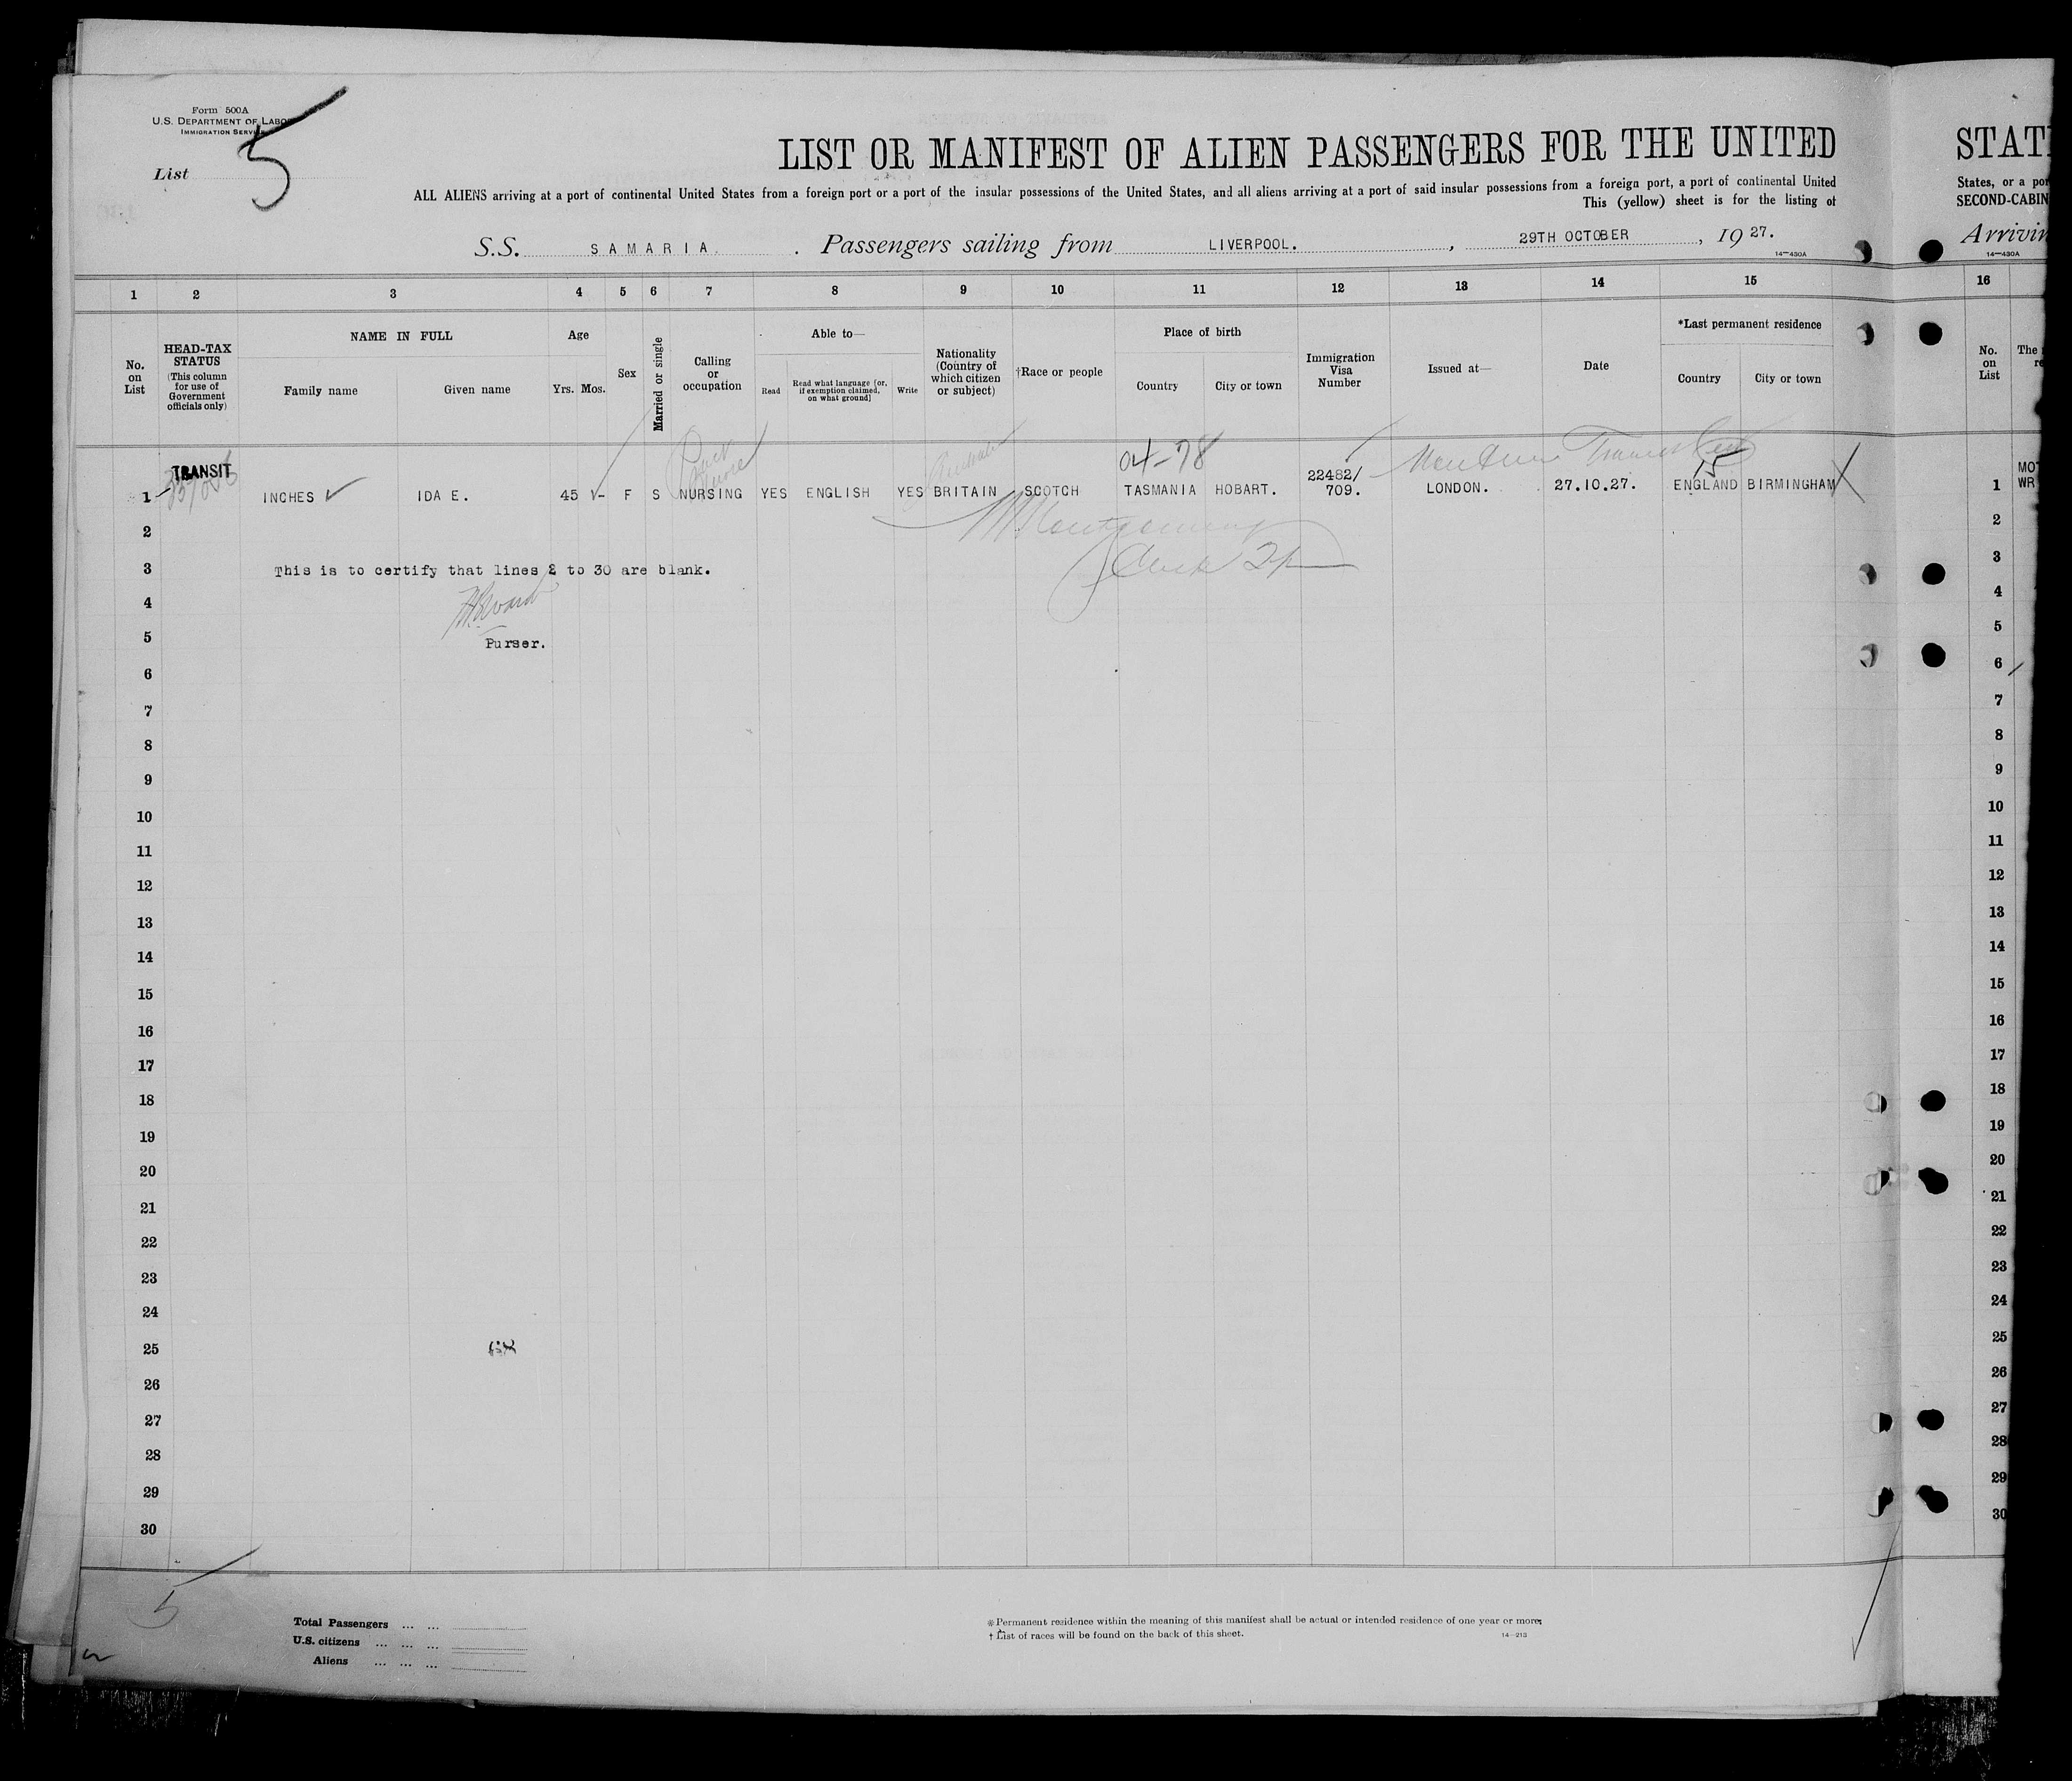 Form 500A
U.S. DEPARTMENT OF LABOR
IMMIGRATION SERVICE
List 5
LIST OR MANIFEST OF ALIEN PASSENGERS FOR THE UNITED
ALL ALIENS arriving at a port of continental United States from a foreign port or a port of the insular possessions of the United States, and all aliens arriving at a port of said insular possessions from a foreign port, a port of continental United
This (yellow) sheet is for the listing of
S.S. SAMARIA. Passengers sailing from LIVERPOOL. , 29TH OCTOBER , 19 27.
14—430A
STAT
States, or a por
SECOND-CABIN
Arrivin
14—430A
1 2 3 4 5 6 7 8 9 10 11 12 13 14 15 16
No. on List
HEAD-TAX STATUS
(This column for use of Government officials only)
NAME IN FULL
Family name Given name
Age
Yrs. Mos.
Sex
Married or single
Calling or occupation
Able to—
Read
Read what language [or, if exemption claimed, on what ground]
Write
Nationality (Country of which citizen or subject)
†Race or people
Place of birth
Country City or town
Immigration Visa Number
Issued at—
Date
*Last permanent residence
Country City or town
No. on List
The
04-78
15
TRANSIT
1 INCHES IDA E. 45 - F S NURSING YES ENGLISH YES BRITAIN SCOTCH TASMANIA HOBART. 22482/ 709. LONDON. 27.10.27. ENGLAND BIRMINGHAM 1
MO
WR
2 2
3 This is to certify that lines 2 to 30 are blank. 3
4 4
5 Purser. 5
6 6
7 7
8 8
9 9
10 10
11 11
12 12
13 13
14 14
15 15
16 16
17 17
18 18
19 19
20 20
21 21
22 22
23 23
24 24
25 68 25
26 26
27 27
28 28
29 29
30 30
5
Total Passengers ... ...
U.S. citizens ... ... ...
Aliens ... ... ...
*Permanent residence within the meaning of this manifest shall be actual or intended residence of one year or more.
† List of races will be found on the back of this sheet.
14—213